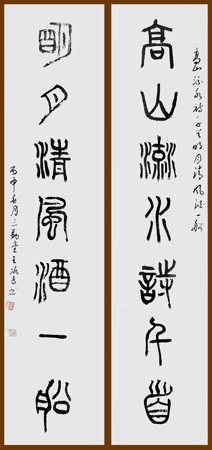 高山流水詩千首明月清風酒一船
高山流水詩千首
明月清風酒一船
丙申春月三